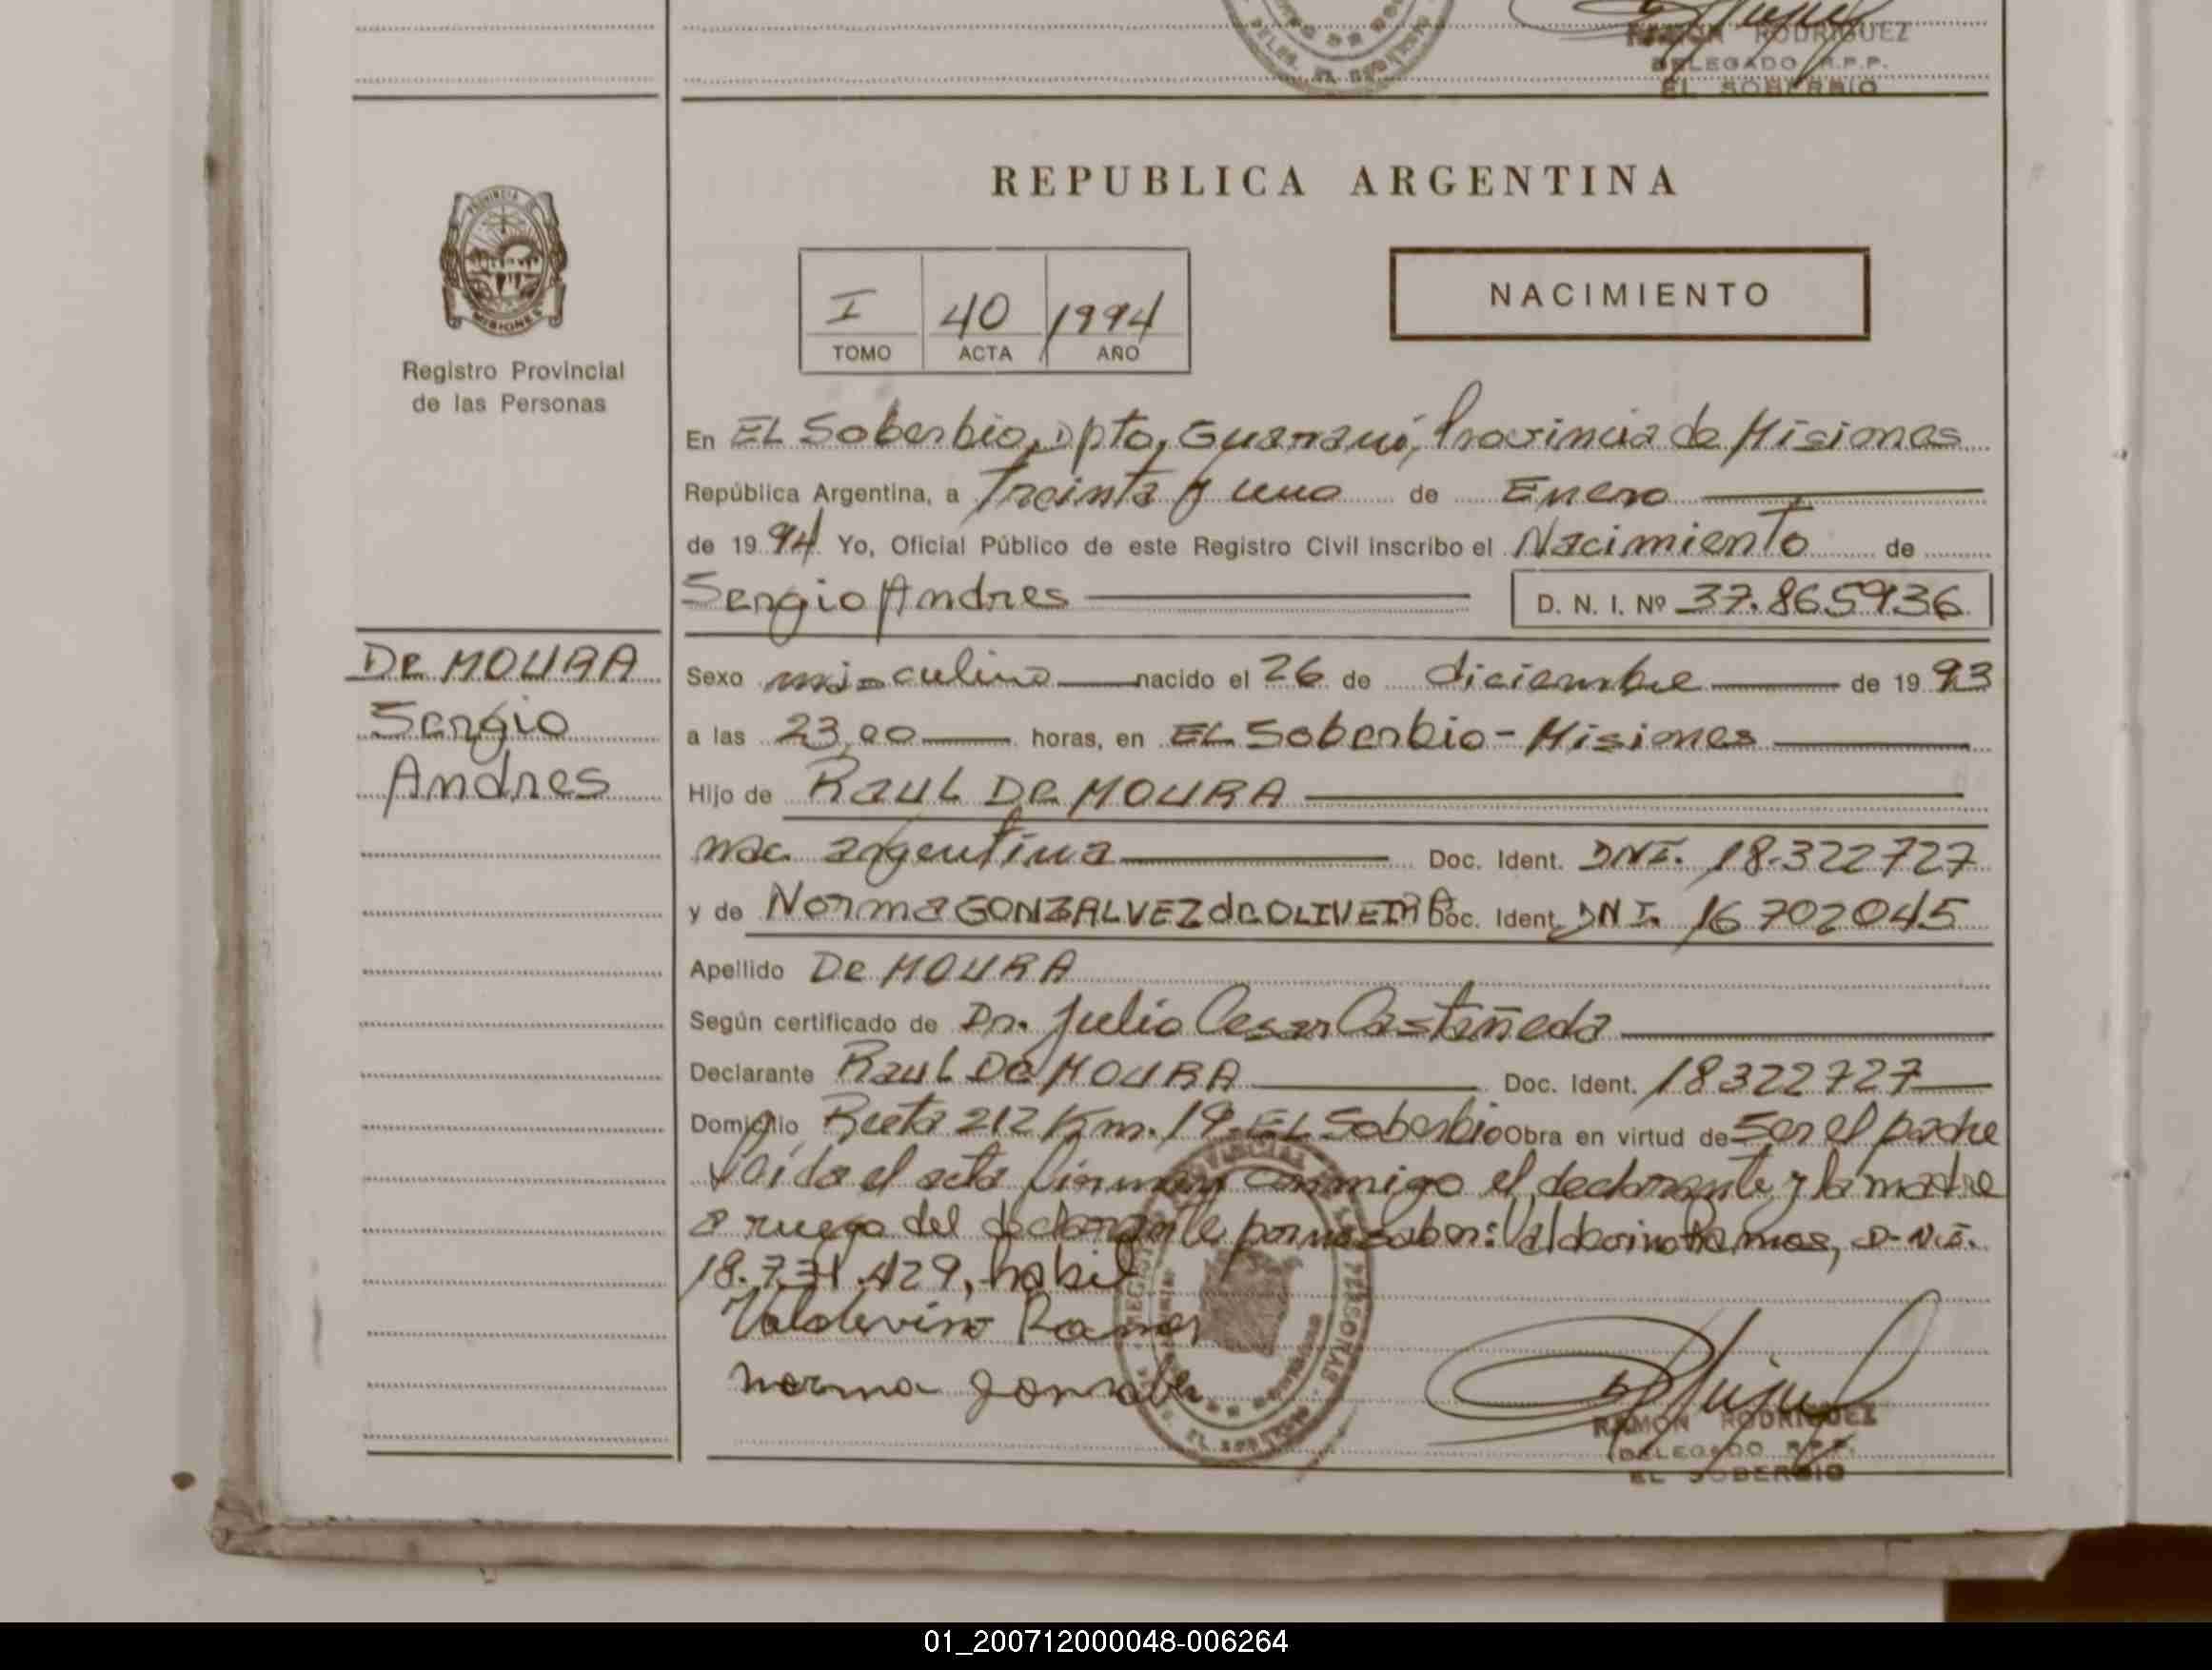 RAMON RODRIGUEZ
DELEGADO R.P.P.
EL SOBERBIO
PROVINCIA DE
MISIONES
Registro Provincial
de las Personas
REPUBLICA ARGENTINA
I 40 1994
TOMO ACTA AÑO
NACIMIENTO
En EL Soberbio, Dpto, Guaraní, Provincia de Misiones
República Argentina, a Treinta y uno de Enero
de 1994 Yo, Oficial Público de este Registro Civil inscribo el Nacimiento de
Sergio Andres D. N. I. Nº 37.865936
DE MOURA
Sergio
Andres
Sexo masculino nacido el 26 de diciembre de 1993
a las 23,00 horas, en EL Soberbio - Misiones
Hijo de RAUL DE MOURA
nac. argentina Doc. Ident. DNI. 18.322727
y de Norma GONZALVEZ de OLIVEIRA Doc. Ident. DNI. 16702045
Apellido DE MOURA
Según certificado de Dr. Julio Cesar Castañeda
Declarante RAUL DE MOURA Doc. Ident. 18322727
Domicilio Ruta 212 Km. 19 - EL Soberbio Obra en virtud de Ser el padre
Leída el acta firman conmigo el declarante y la madre
a ruego del declarante por no saber: Valdevino Ramos, D.N.I.
18.731.429, habil
Valdevino Ramos
norma gonzalez
RAMON RODRIGUEZ
DELEGADO R.P.P.
EL SOBERBIO
01_200712000048-006264